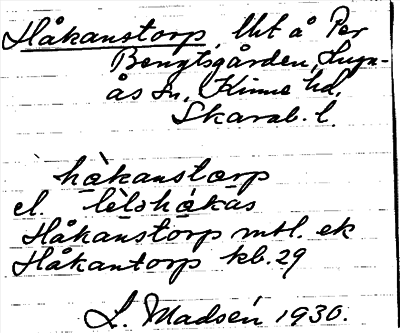 Håkanstorp, lht å Per
Bengtsgården, Lugn-
ås sn, Kinne hd,
Skarab. l.
hàkanstorp
el. lèlshákás
Håkanstorp mtl. ek
Håkantorp kb. 29
L. Madsén 1930.